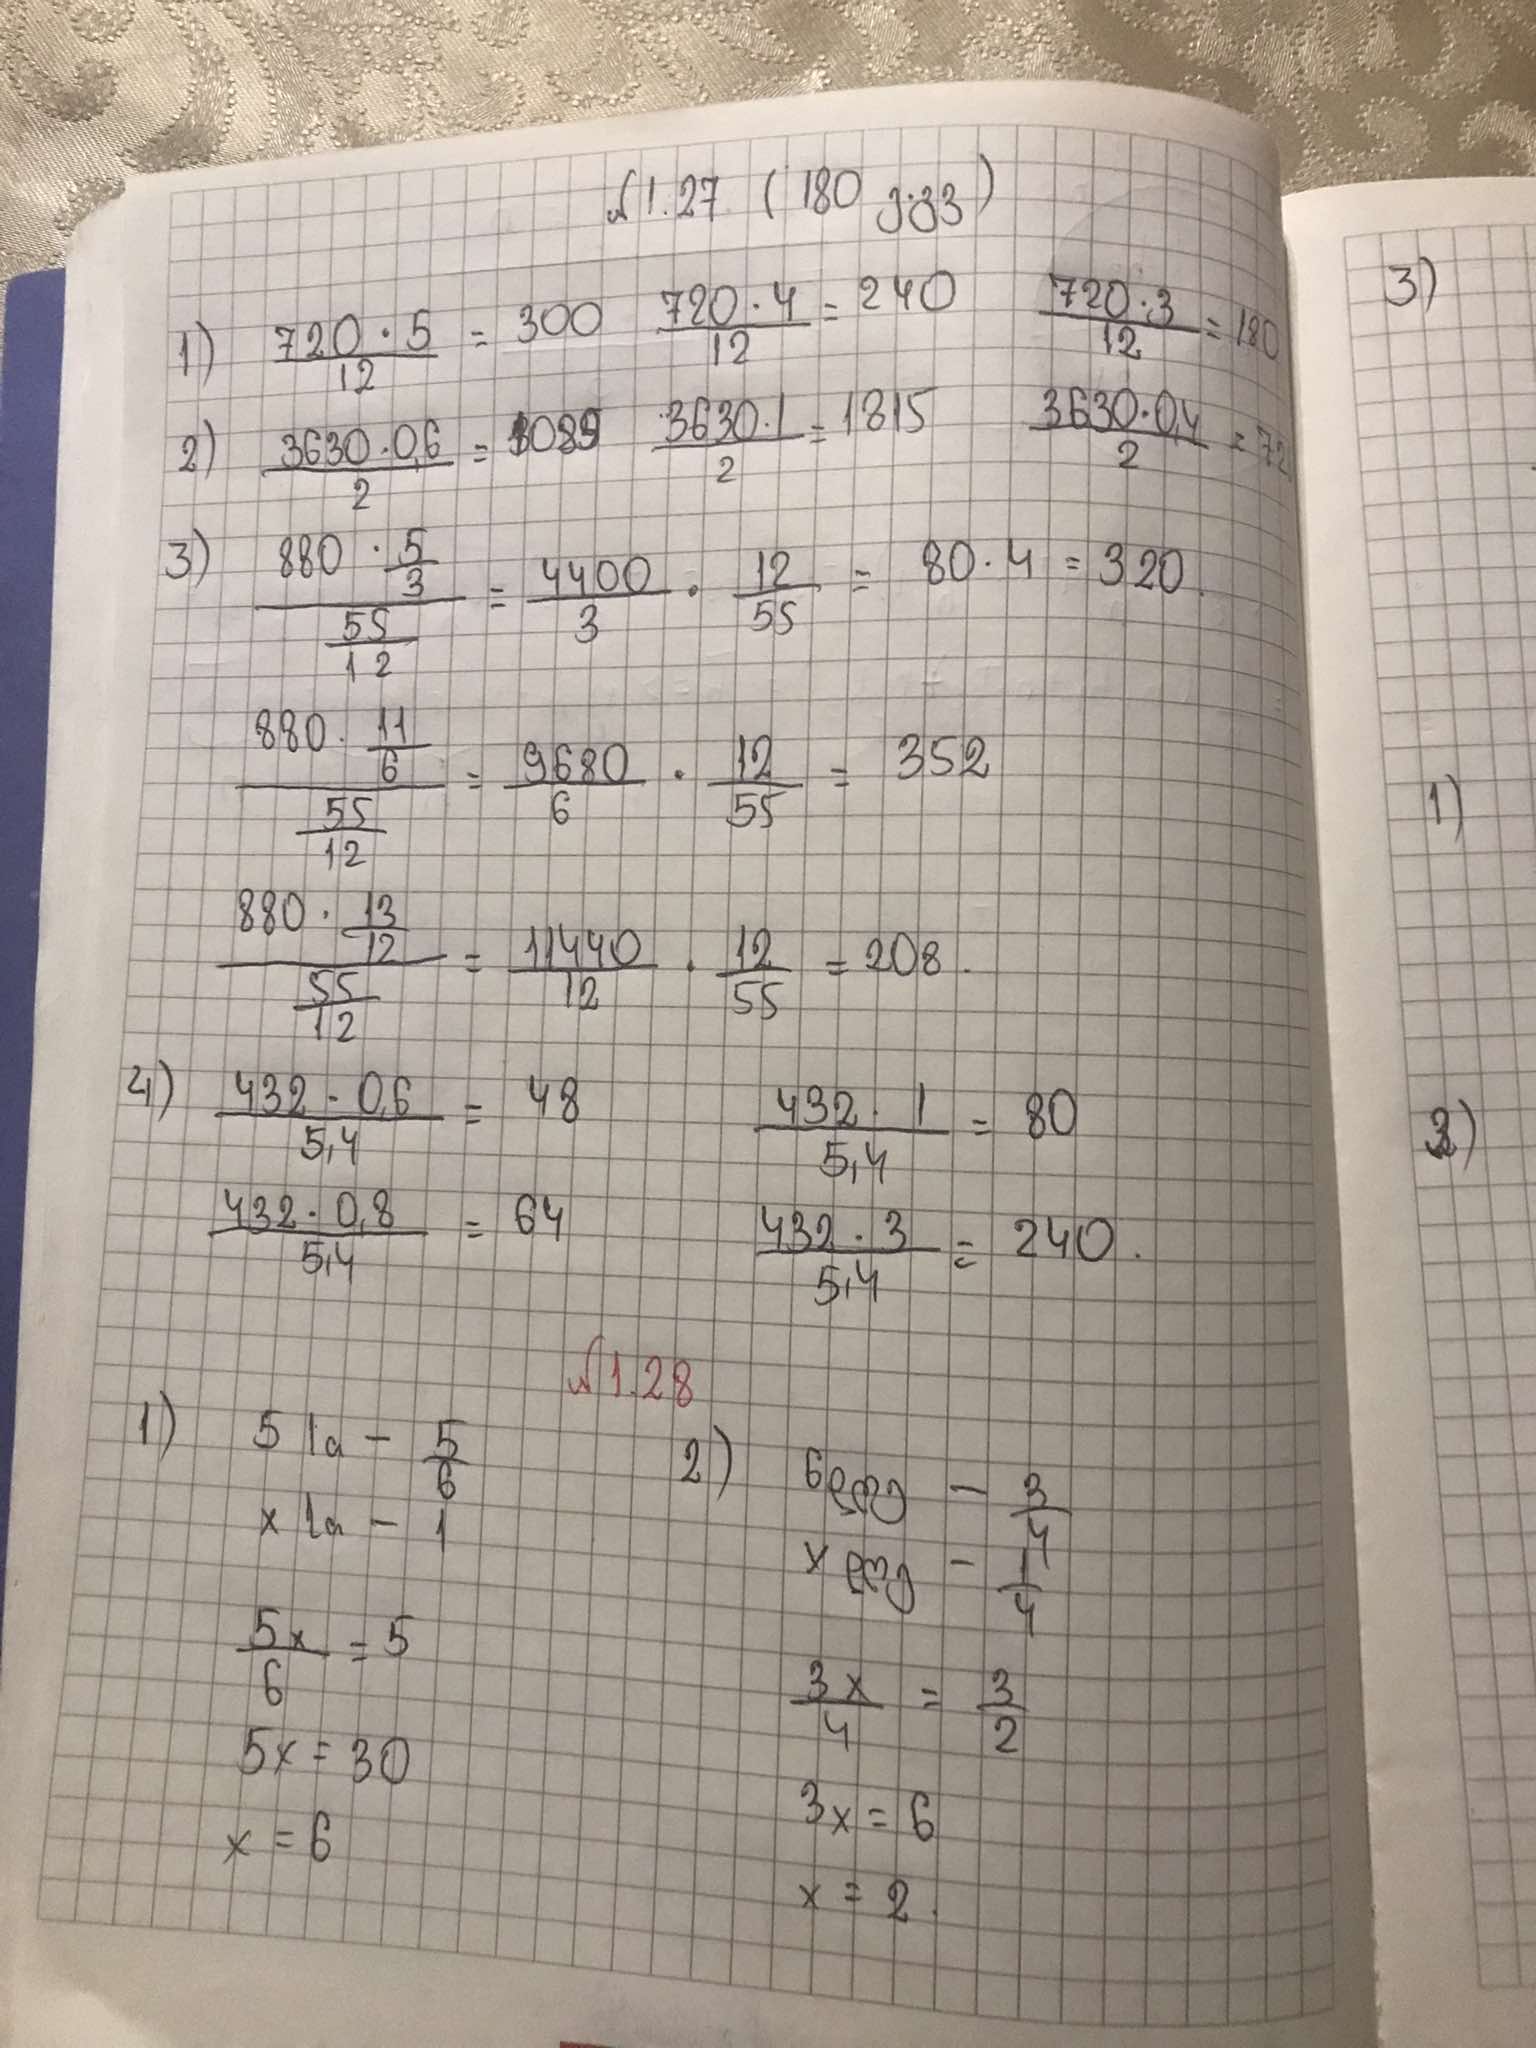 №1.27 (180 გვ)
1) 720·5/12 = 300 720·4/12 = 240 720·3/12 = 180
2) 3630·0,6/2 = 1089 3630·1/2 = 1815 3630·0,4/2 = 72
3) 880·5/3 / 55/12 = 4400/3 · 12/55 = 80·4 = 320.
880·11/6 / 55/12 = 9680/6 · 12/55 = 352
880·13/12 / 55/12 = 11440/12 · 12/55 = 208.
4) 432·0,6/5,4 = 48 432·1/5,4 = 80
432·0,8/5,4 = 64 432·3/5,4 = 240.
№1.28
1) 5 სთ – 5/6
x სთ – 1
5x/6 = 5
5x = 30
x = 6
2) 6 დღე – 3/4
x დღე – 1/4
3x/4 = 3/2
3x = 6
x = 2.
3)
1)
2)